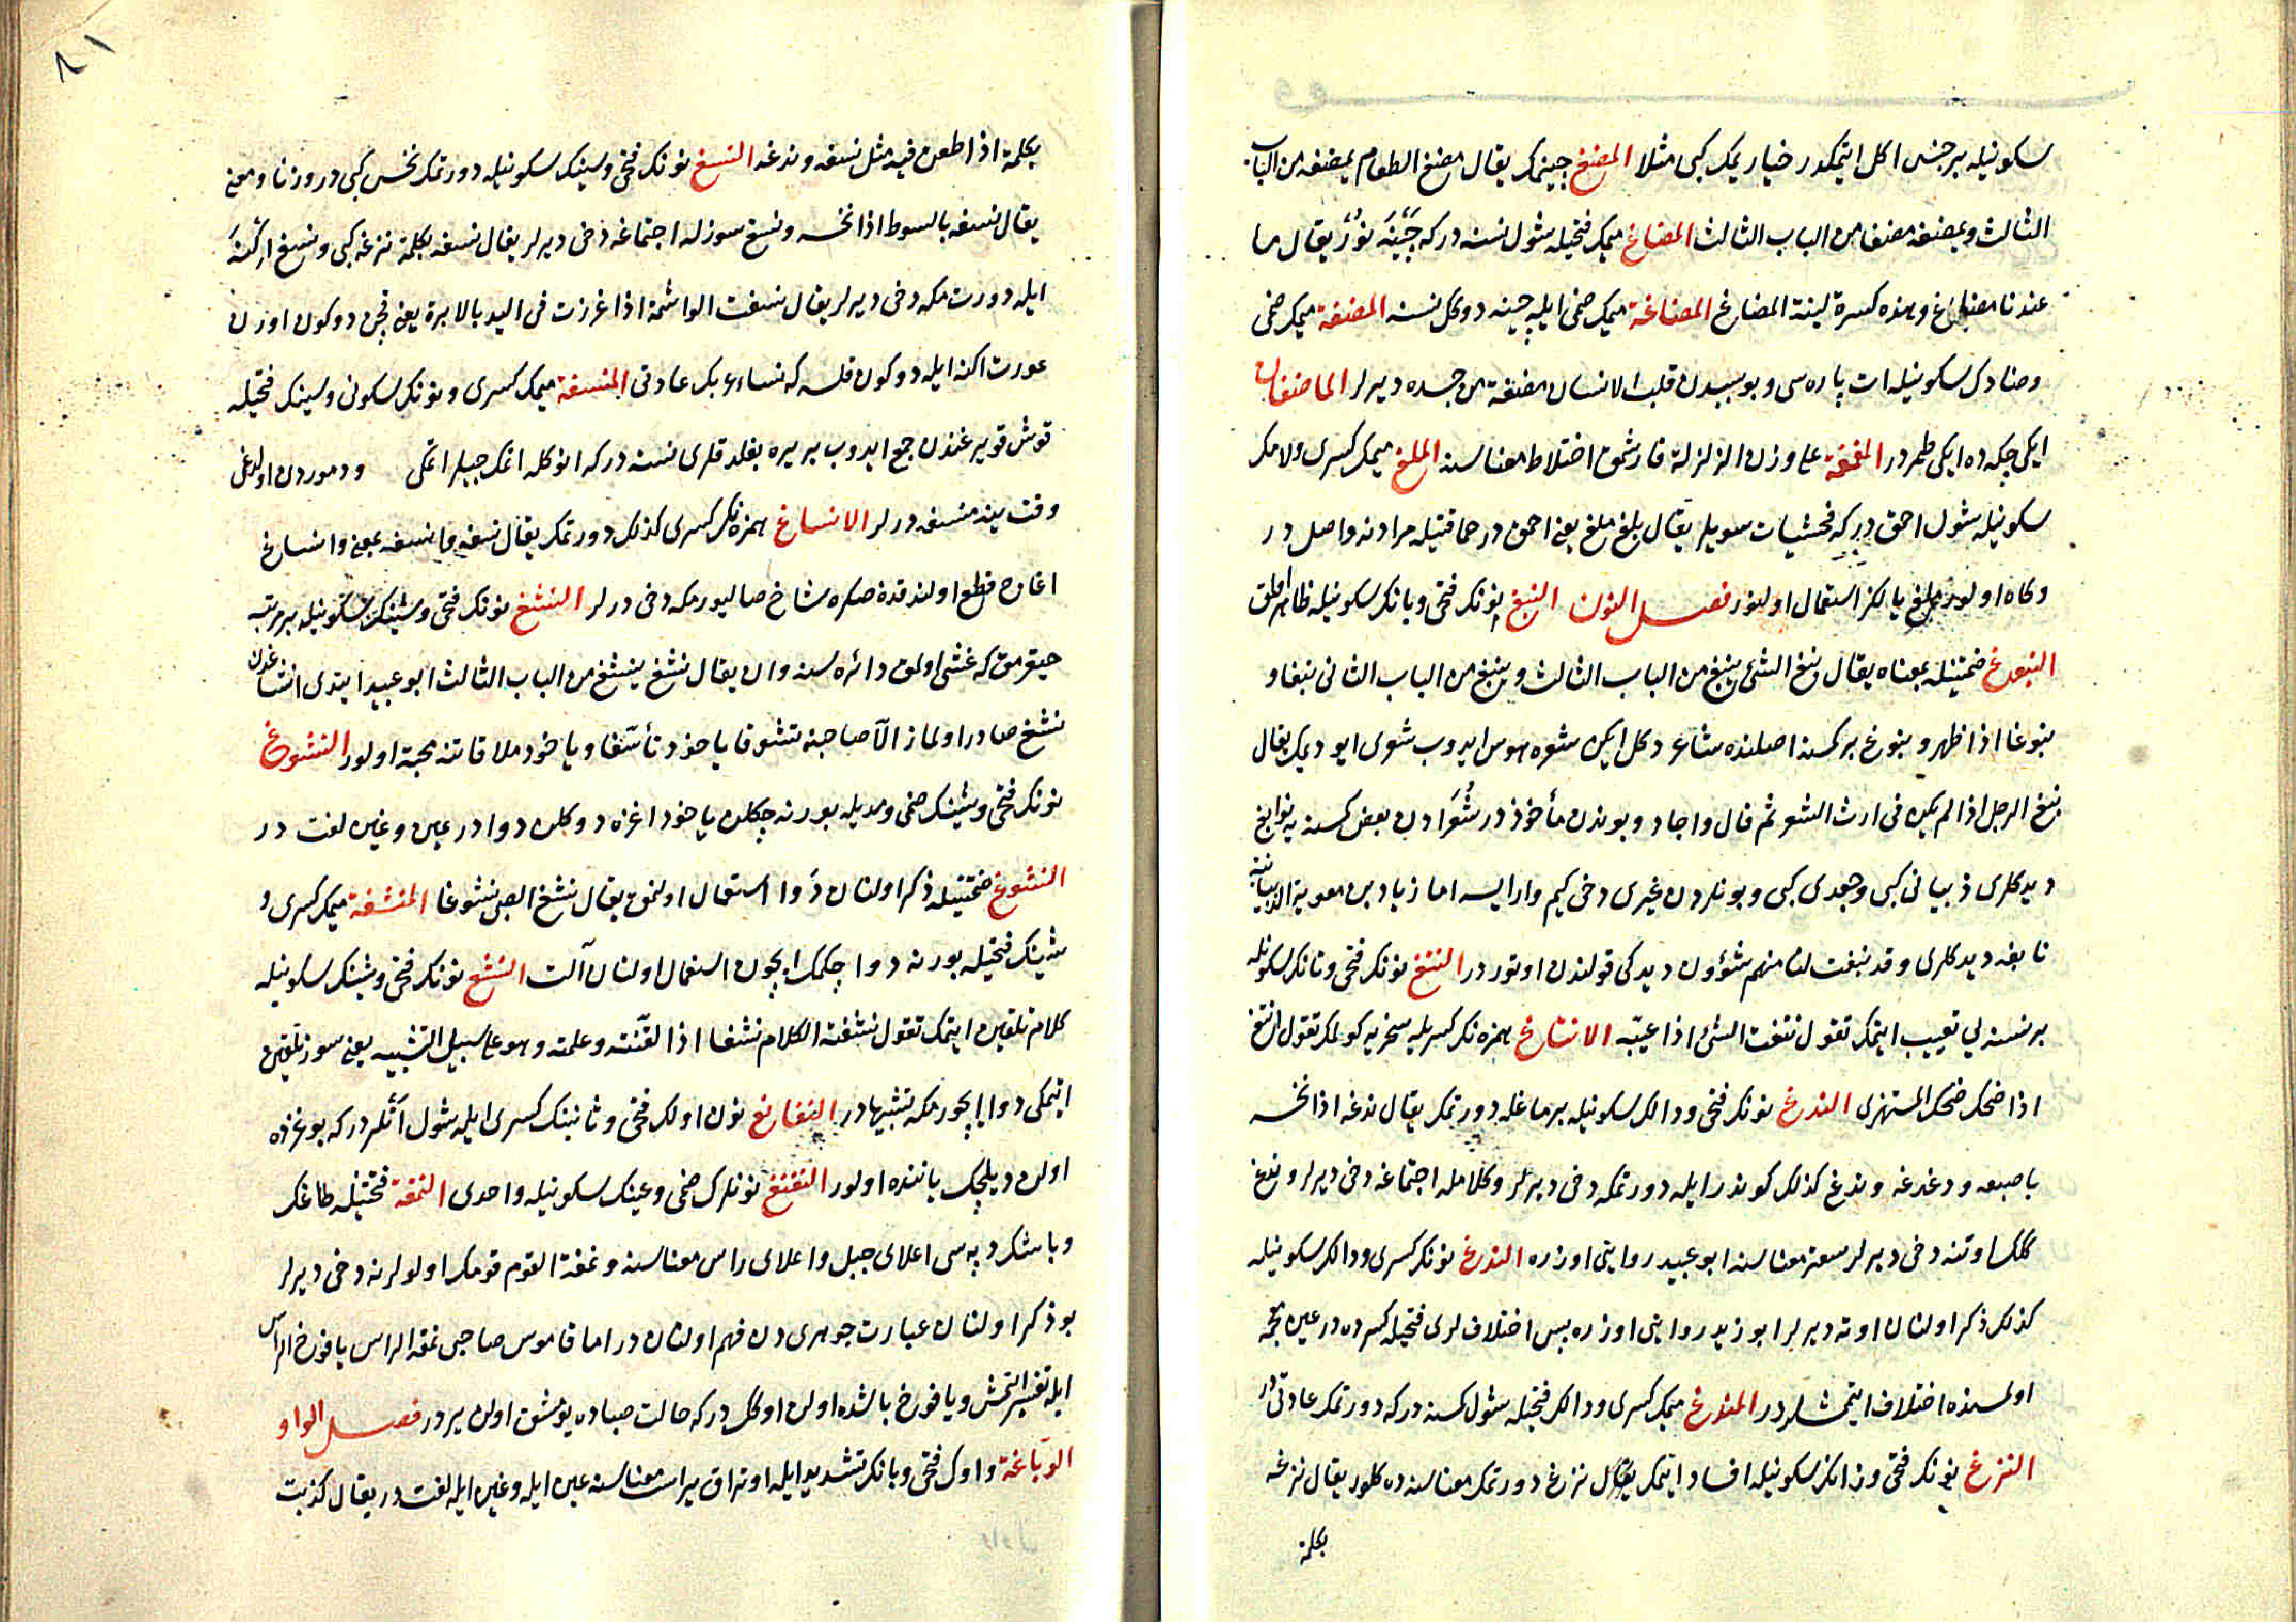 سكونيله بر جنس اكل ايتمكدر خيار يمك كبى مثلا المضغ چينمك يقال مضغ الطعام يمضغه من الباب
الثالث ويمضغه مضغا من الباب الثالث المضاغ ميمك فتحيله شول نسنه دركه چينه نور يقال ما
عندنا مضاغ وهذه كسرة لينة المضاغ المضاغة ميمك ضمى ايله چينه دوكل نسنه المضغة ميمك ضمى
وضادك سكونيله ات پاره سى وبو سببدن قلب الانسان مضغة من جسده ديرلر الماضغان
ايكى چكه ده ايكى طمردر المغمغة على وزن الزلزلة قارشمق اختلاط معناسنه الملغ ميمك كسرى ولامك
سكونيله شول احمق دركه فحشيات سويلر يقال بلغ ملغ يعنى احمق در حماقتيله مرادنه واصل در
وكاه اولور ملغ يالكز استعمال اولنور فصل النون النبغ نونك فتحى وبانك سكونيله ظاهر اولمق
النبوغ ضمتينله بمعناه يقال نبغ الشئ ينبغ من الباب الثالث وينبغ من الباب الثانى نبغا و
نبوغا اذا ظهر و نبوغ بر كمسنه اصلنده شاعر دكل ايكن شعره هوس ايدوب شعرى ايو ديمك يقال
نبغ الرجل اذا لم يكن فى ارث الشعر ثم قال واجاد وبوندن مأخوذدر شعرادن بعض كمسنه يه نوابغ
ديدكلرى ذبيانى كبى وجعدى كبى وبونلردن غيرى دخى كيم وارايسه اما زياد بن معوية الذبيانيه
نابغه ديدكلرى وقد نبغت لنا منهم شؤون ديدكى قولندن اوتوردر النتغ نونك فتحى وتانك سكونيله
بر نسنه يى تعييب ايتمك تقول نتغت الشئ اذا عيبه الانتاغ همزه نك كسريله سخريه كولمك تقول انتغ
اذا ضحك ضحك المستهزى الندغ نونك فتحى ودالك سكونيله برماغله دورتمك يقال ندغه اذا نخسه
باصبعه ودغدغه وندغ كذلك كوندر ايله دورتمكه دخى ديرلر وكلامله اجتماغه دخى ديرلر وندغ
كلك اوتنه دخى ديرلر سعتر معناسنه ابو عبيد روايتى اوزره الندغ نونك كسرى ودالك سكونيله
كذلك ذكر اولنان اوته ديرلر ابو زيد روايتى اوزره پس اختلاف لرى فتحيله كسرده در عين بچه
اولمسنده اختلاف ايتمشلردر المندغ ميمك كسرى ودالك فتحيله شول كمسنه دركه دورتمك عادتى در
النزغ نونك فتحى وزانك سكونيله افساد ايتمك يقال نزغ دورتمك معناسنده كلور يقال نزغه
بكلمة
٨١
بكلمة اذا طعن فيه مثل نسغه وندغه النسغ نونك فتحى وسينك سكونيله دورتمك نخس كبى در وزنا ومعنى
يقال نسغه بالسوط اذا نخسه ونسغ سوزله اجتماغه دخى ديرلر يقال نسغه بكلمة نزغه كبى ونسغ اركنه
ايله دورتمكه دخى ديرلر يقال نسغت الواشمة اذا غرزت فى اليد بالابرة يعنى قچن دوكون اورن
عورت اكنه ايله دوكون قلسه كه نساء عربك عادتى المنسغة ميمك كسرى ونونك سكونى وسينك فتحيله
قوش قويرغندن جمع ايدوب بر يره بغلدقلرى نسنه دركه انوكله اتمك جيلر اتمكى ودموردن اولدغى
وقت ينه منسغه درلر الانساغ همزه نك كسرى كذلك دورتمك يقال نسغه وانسغه بمعنى وانساغ
اغاج قطع اولندقدن صكره شاخ صاليورمكه دخى درلر النشغ نونك فتحى وشينك سكونيله بر مرتبه
حيقرمق كه غشى اولمق دائره سنه وارن يقال نشغ ينشغ من الباب الثالث ابو عبيد ايتدى انشاغدن
نشغ صادر اولماز الا صاحبنه تشوقا ياخود تأسفا وياخود ملاقاتنه محبة اولور النشوغ
نونك فتحى وشينك ضمى ومديله بورنه چكلن ياخود اغزه دوكلن دوادر عين وغين لغت در
النشوغ ضمتينله ذكر اولنان دوا استعمال اولنمق يقال نشغ الصبى نشوغا المنشغة ميمك كسرى و
شينك فتحيله بورنه دوا چكمك ايچون استعمال اولنان آلت النشغ نونك فتحى وشينك سكونيله
كلام تلقين ايتمك تقول نشغته الكلام نشغا اذا لقنته وعلمته وهو على سبيل التشبيه يعنى سوز تلقين
ايتمكى دوا ايچورمكه تشبيهادر النغانغ نون اولك فتحى وثانينك كسرى ايله شول اتلردر كه بوغزده
اولن ديلجك ياننده اولور النغنغ نونلرك ضمى وغينك سكونيله واحدى النمغة فتحتينله طاغك
وباشكرده په سى اعلاى جبل واعلاى راس معناسنه ونمغة القوم قومك اولولرنه دخى ديرلر
بو ذكر اولنان عبارت جوهرى دن فهم اولنان در اما قاموس صاحبى نمغة الراس يافوخ الراس
ايله تفسير اتمش ويافوخ باشده اولن اوكل دركه حالت صباده يومشق اولن يردر فصل الواو
الوباغة واوك فتحى وبانك تشديد ايله اوتراق ير است معناسنه عين ايله وغين ايله لغت در يقال كذبت